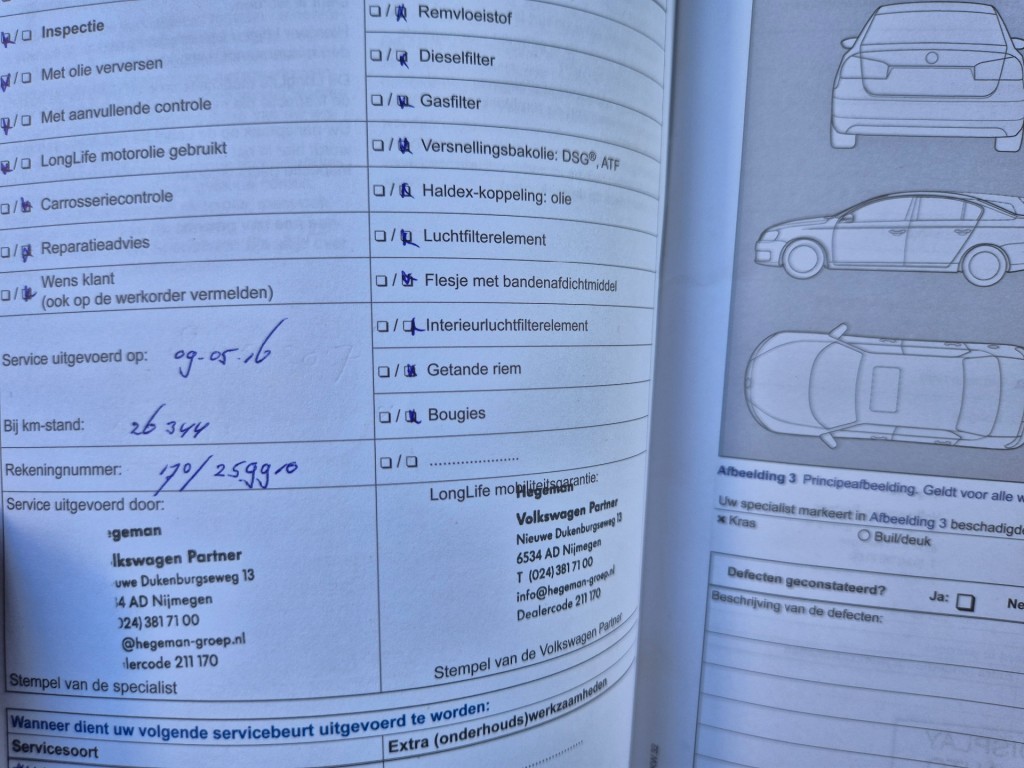 Inspectie
Met olie verversen
Met aanvullende controle
LongLife motorolie gebruikt
Carrosseriecontrole
Reparatieadvies
Wens klant
(ook op de werkorder vermelden)
Service uitgevoerd op: 09-05-16
Bij km-stand: 26 344
Rekeningnummer:
Service uitgevoerd door:
geman
lkswagen Partner
uwe Dukenburgseweg 13
4 AD Nijmegen
024) 381 71 00
@hegeman-groep.nl
lercode 211 170
Stempel van de specialist
Remvloeistof
Dieselfilter
Gasfilter
Versnellingsbakolie: DSG®, ATF
Haldex-koppeling: olie
Luchtfilterelement
Flesje met bandenafdichtmiddel
Interieurluchtfilterelement
Getande riem
Bougies
LongLife mobiliteitsgarantie:
Hegeman
Volkswagen Partner
Nieuwe Dukenburgseweg 13
6534 AD Nijmegen
T (024) 381 71 00
info@hegeman-groep.nl
Dealercode 211 170
Stempel van de Volkswagen Partner
Wanneer dient uw volgende servicebeurt uitgevoerd te worden:
Servicesoort
Extra (onderhouds)werkzaamheden
Afbeelding 3 Principeafbeelding. Geldt voor alle
Uw specialist markeert in Afbeelding 3
Kras
Buil/deuk
Defecten geconstateerd?
Ja:
Beschrijving van de defecten: